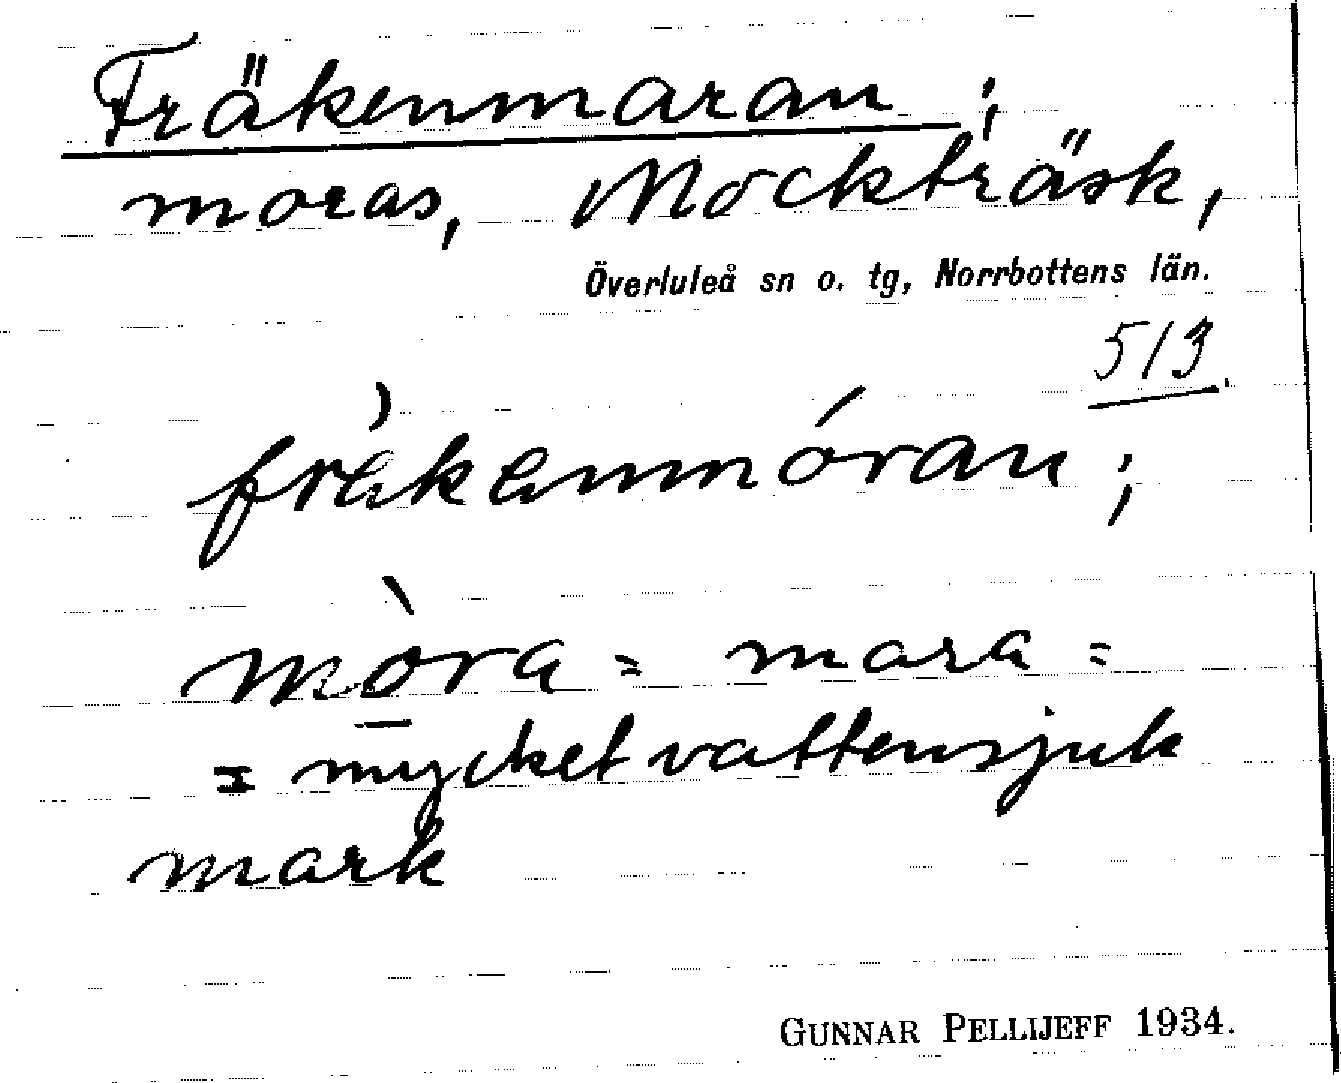 Fräkenmaran ;
moras, Mockträsk,
Överluleå sn o. tg, Norrbottens län.
513.
fräkenmóran ;
mòra = mara =
= mycket vattensjuk
mark
GUNNAR PELLIJEFF 1934.